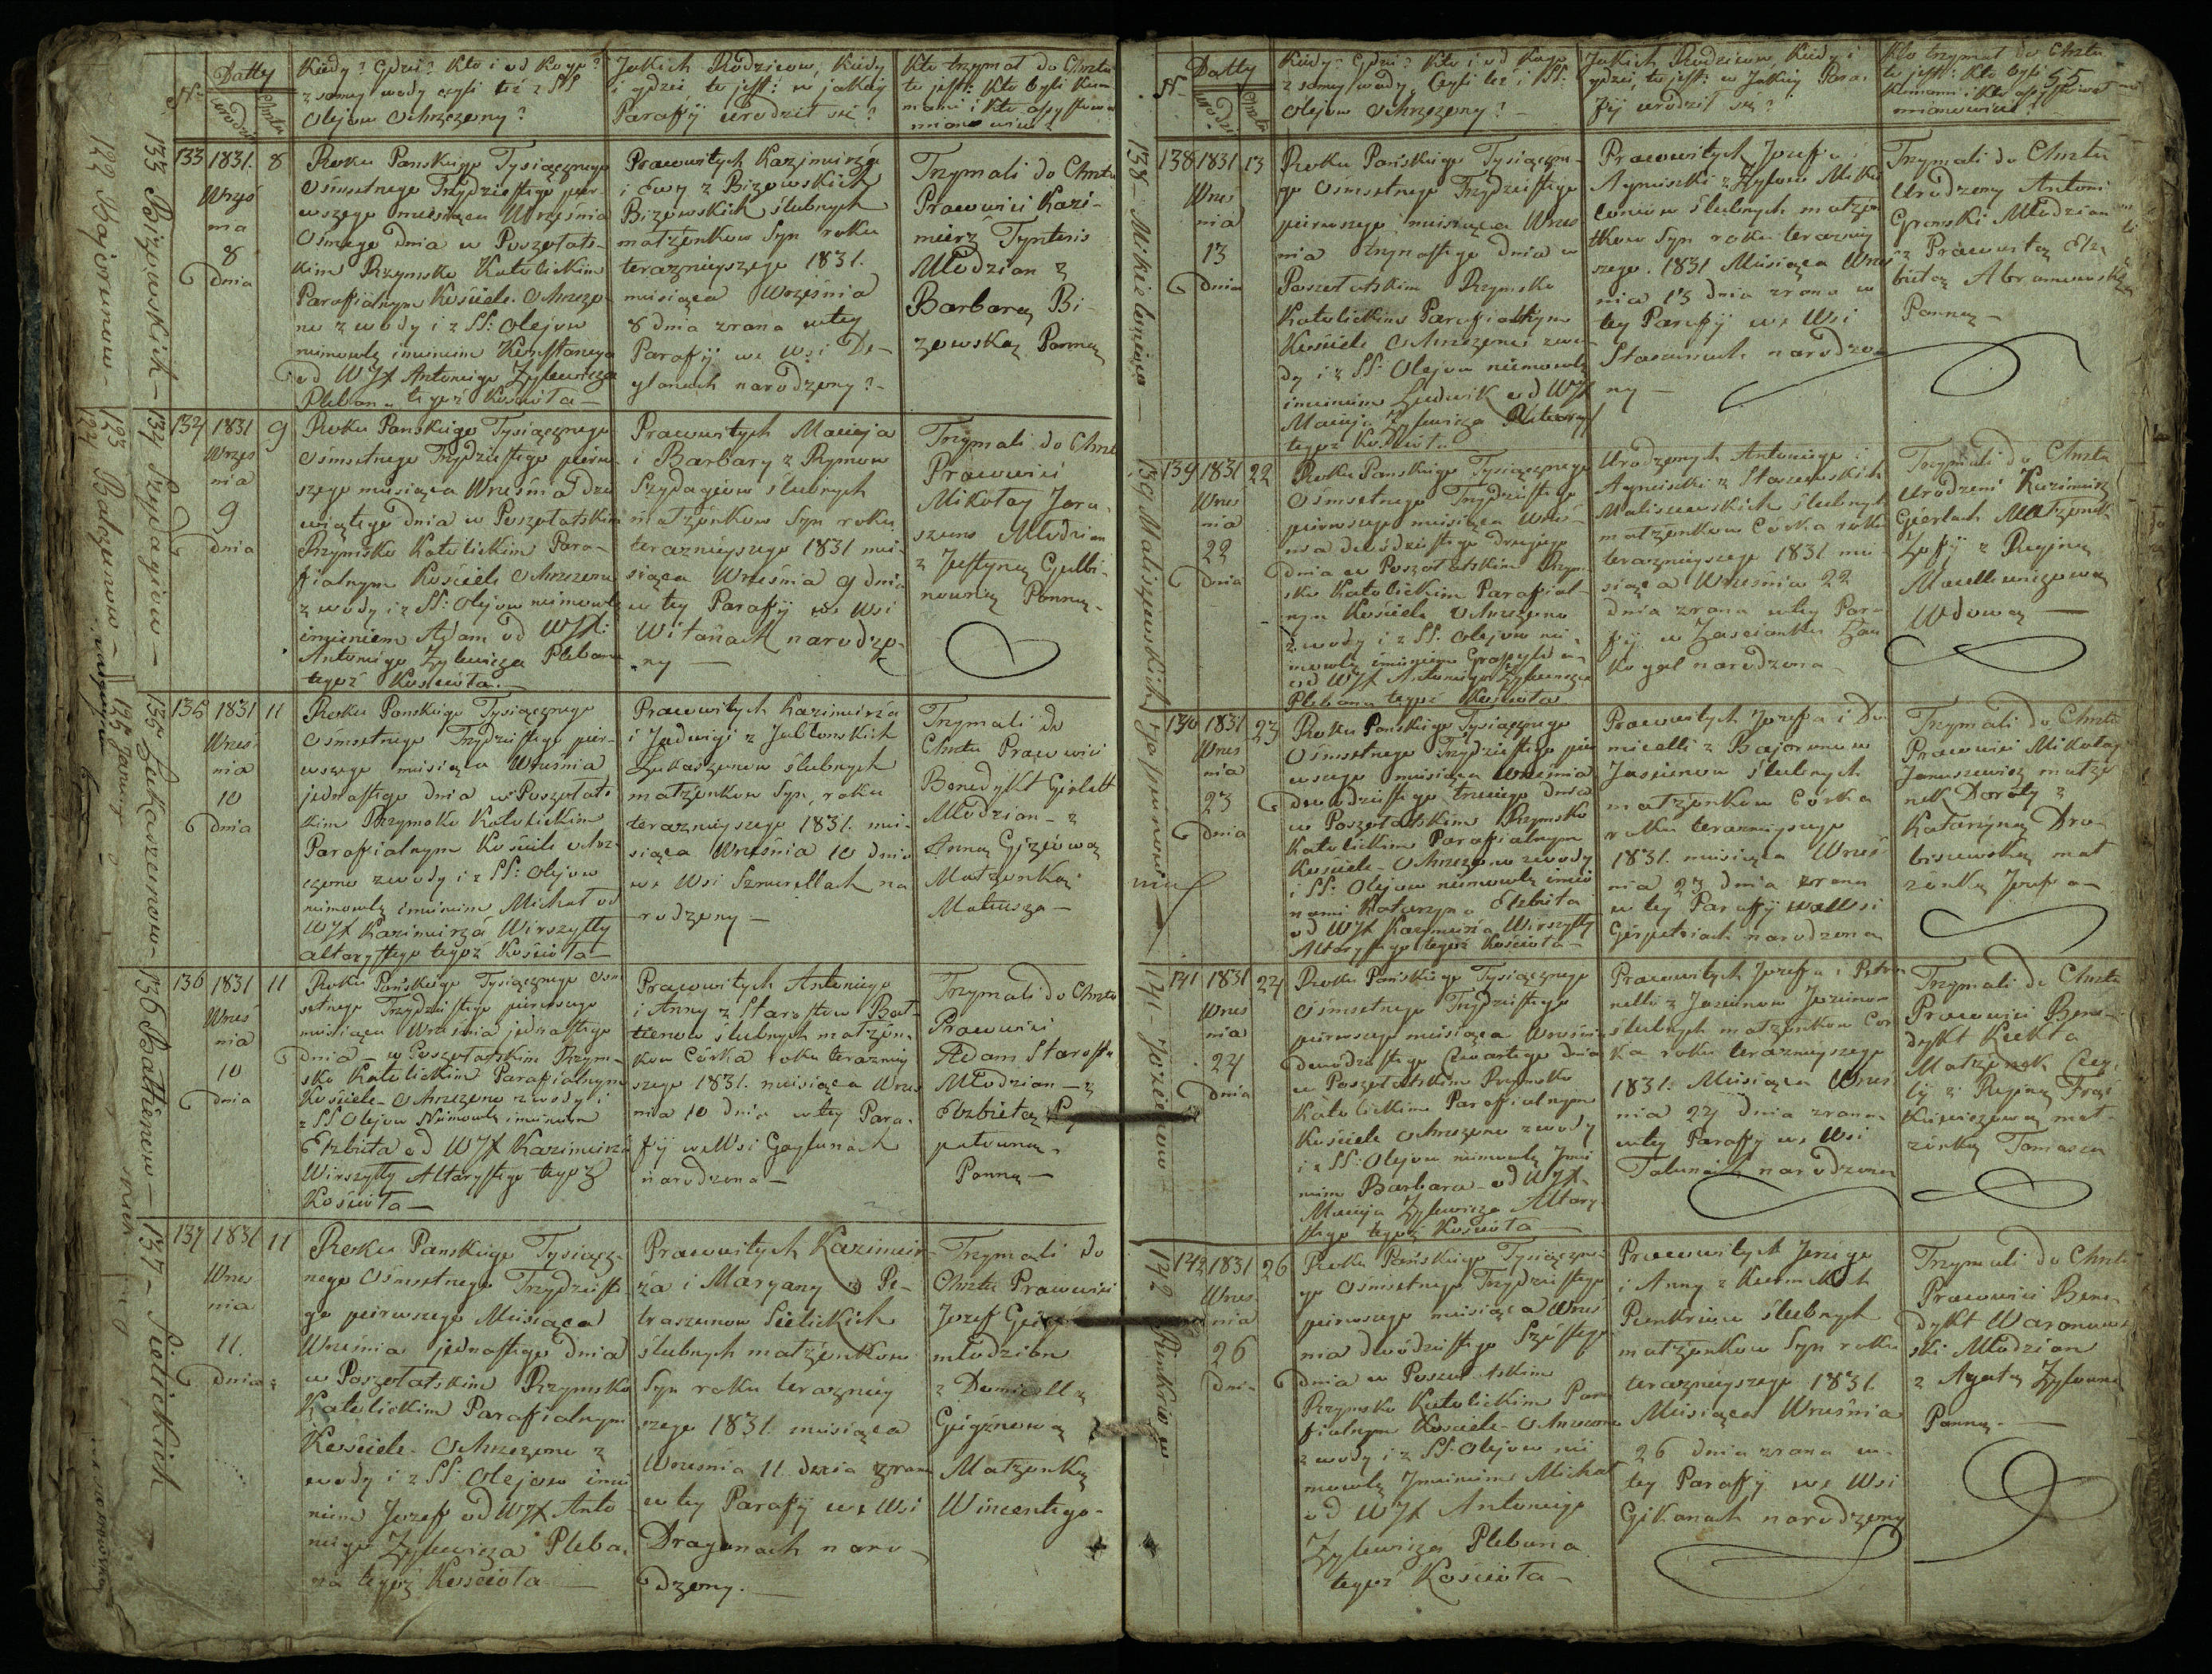 Nr
Datty
urodz:
Chrztu
Kiedy? Gdzie? Kto i od kogo?
z samey wody czyli też z SS
Olejow Ochrzczony?
Jakich Rodzicow, kiedy
i gdzie, to jest: w jakiey
Parafij urodził się?
Kto trzymał do Chrztu
to jest: Kto byli kum
mami i kto assystował
mianowicie?
133 Bizowskich
133
1831.
Wrześ
nia
8
dnia
8
Roku Panskiego Tysiącznego
Osmsetnego Trzydziestego pier-
wszego miesiąca Września
Osmego dnia w Poszołats-
kim Rzymsko Katolickim
Parafijalnym Kościele Ochrzczo-
no z wody i z SS: Olejow
niemowlę imieniem Konstantego
od WJX Antoniego Zylewicza
Plebana tegoż Kościoła —
Pracowitych Kazimierza
i Ewy z Bizowskich
Bizowskich ślubnych
małżonkow Syn roku
teraznieyszego 1831.
miesiąca Września
8 dnia zrana w tey
Parafij we Wsi De-
glanach narodzony?-
Trzymali do Chrztu
Pracowici Kazi-
mierz Tyntenis
Młodzian z
Barbarą Bi-
zowską Panną
134 Szydagiow
134
1831
Wrzes
nia
9
dnia
9
Roku Panskiego Tysiącznego
Osmsetnego Trzydziestego pierw-
szego miesiąca Września dzie
wiątego dnia w Poszołatskim
Rzymsko Katolickim Para-
fialnym Kościele Ochrzczono
z wody i z SS: Olejow niemowlę
imieniem Adam od WJX:
Antoniego Zylewicza Plebana
tegoż Kościoła.
Pracowitych Macieja
i Barbary z Rymow
Szydagiow ślubnych
małżonkow Syn roku
teraznieyszego 1831 mie-
siąca Września 9 dnia
w tey Parafij we Wsi
Witanach narodzo-
ny —
Trzymali do Chrztu
Pracowici
Mikołay Jara-
szuno Młodzian
z Justyną Gulbi-
nowną Panną.
135 Łukaszunow
135
1831
Wrześ
nia
10
dnia
11
Roku Panskiego Tysiącznego
Osmsetnego Trzydziestego pier-
wszego miesiąca Września
jednastego dnia w Poszołats
kim Rzymsko Katolickim
Parafialnym Kościele ochrz-
czono z wody i z SS: Olejow
niemowlę imieniem Michał od
WJX Kazimierza Wirszyłły
altarystego tegoż Kościoła —
Pracowitych Kazimierza
i Jadwigi z Jubłonskich
Łukaszunow ślubnych
małżonkow Syn, roku
teraznieyszego 1831. mie-
siąca Września 10 dnia
we Wsi Szmurllach na
rodzony —
Trzymali do
Chrztu Pracowici
Benedykt Girlatt
Młodzian z
Anną Giziową
Małżonką
Mateusza —
136 Battienow
136
1831
Wrześ
nia
10
dnia
11
Roku Pańskiego Tysiącznego Osm
setnego Trzydziestego pierwszego
miesiąca Września jednastego
dnia — w Poszołatskim Rzym-
sko Katolickim Parafialnym
Kościele Ochrzczono z wody i
z SS Olejow Niemowlę imieniem
Elzbieta od WJX Kazimierza
Wirszyłły Altarystego tegoż
Kościoła —
Pracowitych Antoniego
i Anny z Starostow Bat-
tienow ślubnych małżon-
kow Córka roku teraznie
szego 1831. miesiąca Wrześ
nia 10 dnia w tey Para-
fij we Wsi Gaylunach
narodzona —
Trzymali do Chrztu
Pracowici
Adam Starosta
Młodzian — z
Elzbietą
patowną
Panną —
137 — Sielickich
137
1831
Wrześ
nia
11.
dnia
11
Roku Panskiego Tysiącz-
nego Osmsetnego Trzydzieste
go pierwszego Miesiąca
Września jednastego dnia
w Poszołatskim Rzymsko
Katolickim Parafialnym
Kościele Ochrzczono z
wody i z SS: Olejow imie
niem Jozef od WJX Anto
niego Zylewicza Pleba-
na tegoż Kościoła —
Pracowitych Kazimier-
za i Maryany z Pe-
traszunow Sielickich
ślubnych małżonkow
Syn roku terazniey
szego 1831. miesiąca
Września 11 dnia zrana
w tey Parafij we Wsi
Draganach naro-
dzony.—
Trzymali do
Chrztu Pracowici
Jozef
młodzian
z Domicellą
Gieginową
Małżonką
Wincentego-
55
Nr
Datty
urodz:
Chrztu
Kiedy? Gdzie? Kto i od kogo
z samey wody, Czyli też i SS:
Olejow Ochrzczony? —
Jakich Rodzicow, kiedy i
gdzie, to jest: w Jakiey Para-
fij urodził się?
Kto trzymał do Chrztu
to jest: Kto byli
Kumami i Kto assystował
mianowicie?
138 Mikieloniow —
138
1831
Wrześ
nia
13
dnia
13
Roku Pańskiego Tysiączne-
go Osmsetnego Trzydziestego
pierwszego miesiąca Wrześ
nia trzynastego dnia w
Poszołatskim Rzymsko
Katolickim Parafialnym
Kościele Ochrzczono z wo-
dy i z SS: Olejow niemowlę
imieniem Ludwik od WJX
Macieja Zylewicza Altaryst
tegoż Kościoła
Pracowitych Jozefa i
Agnieszki z Zyłow Mikie
loniow ślubnych małżon
kow Syn roku teraznie
szego. 1831 Miesiąca Wrześ
nia 13 dnia zrana w
tey Parafij we Wsi
Staszunach narodzo
ny —
Trzymali do Chrztu
Urodzony Antoni
Gronski Młodzian
z Pracowitą Elz
bietą Abramowską
Panną —
139 Maliszewskich
139
1831
Wrześ
nia
22
dnia
22
Roku Panskiego Tysiącznego
Osmsetnego Trzydziestego
pierwszego miesiąca Wrześ-
nia dwódziestego drugiego
dnia w Poszołatskim Rzym-
sko Katolickim Parafial-
nym Kościele Ochrzczono
z wody i z SS. Olejow nie-
mowlę imieniem
od WJX Antoniego Zylewicza
Plebana tegoż Kościoła
Urodzonych Antoniego i
Agnieszki z Staszewskich
Maliszewskich ślubnych
małżonkow Córka roku
teraznieyszego 1831 mie-
siąca Września 22
dnia zrana w tey Para-
fij w Zascianku
narodzona
Trzymali do Chrztu
Urodzeni Kazimierz
Gierlach Małżonek
Zofij z Reginą
Wdową —
140 Jasiunow
140
1831
Wrześ
nia
23
dnia
23
Roku Panskiego Tysiącznego
Osmsetnego Trzydziestego pier
wszego miesiąca Września
dwódziestego trzeciego dnia
w Poszołatskim Rzymsko
Katolickim Parafialnym
Kościele Ochrzczono z wody
i SS: Olejow niemowlę imio
nami Katarzyna Elzbieta
od WJX Kazimierza Wirszyłły
Altarystego tegoż Kościoła —
Pracowitych Jozefa i Do
micelli z Bajorunow
Jasiunow ślubnych
małżonkow Córka
roku teraznieyszego
1831. miesiąca Wrześ
nia 23 dnia zrana
w tey Parafij we Wsi
Girputiach narodzona
Trzymali do Chrztu
Pracowici Mikołay
Januszewicz małżo
nek Doroty z
Katarzyną Dro-
biszewską mał
żonką Jozefa —
141 Joziunow
141
1831
Wrześ
nia
24
dnia
24
Roku Pańskiego Tysiącznego
Osmsetnego Trzydziestego
pierwszego miesiąca Wrześni
dwódziestego Czwartego dnia
w Poszołatskim Rzymsko
Katolickim Parafialnym
Kościele Ochrzczono z wody
i z SS: Olejow niemowlę Imie
niem Barbara — od WJX.
Macieja Zylewicza Altary-
stego tegoż Kościoła —
Pracowitych Jozefa i Petro
nelli z Joziunow Joziunow
ślubnych małżonkow Cór
ka roku teraznieyszego
1831. Miesiąca Wrześ
nia 24 dnia zrana
w tey Parafij we Wsi
Talunach narodzona
Trzymali do Chrztu
Pracowici Bene-
dykt Kiekła
Małżonek Cecy
lij z Reginą
mał-
żonką Tomasza
142
142
1831
Wrześ
nia
26
dnia
26
Roku Pańskiego Tysiączne-
go Osmsetnego Trzydziestego
pierwszego miesiąca Wrześ
nia dwódziestego Szóstego
dnia w Poszołatskim
Rzymsko Katolickim Para
fialnym Kościele Ochrzczono
z wody i z SS: Olejow nie
mowlę Imieniem Michał
od WJX Antoniego
Zylewicza Plebana
tegoż Kościoła —
Pracowitych Jerzego
i Anny z
ślubnych
małżonkow Syn roku
teraznieyszego 1831.
Miesiąca Września
26 dnia zrana w
tey Parafij we Wsi
Gikanach narodzony
Trzymali do Chrztu
Pracowici Bene-
dykt Woronow
ski Młodzian
z Agatą Zyłowną
Panną. —